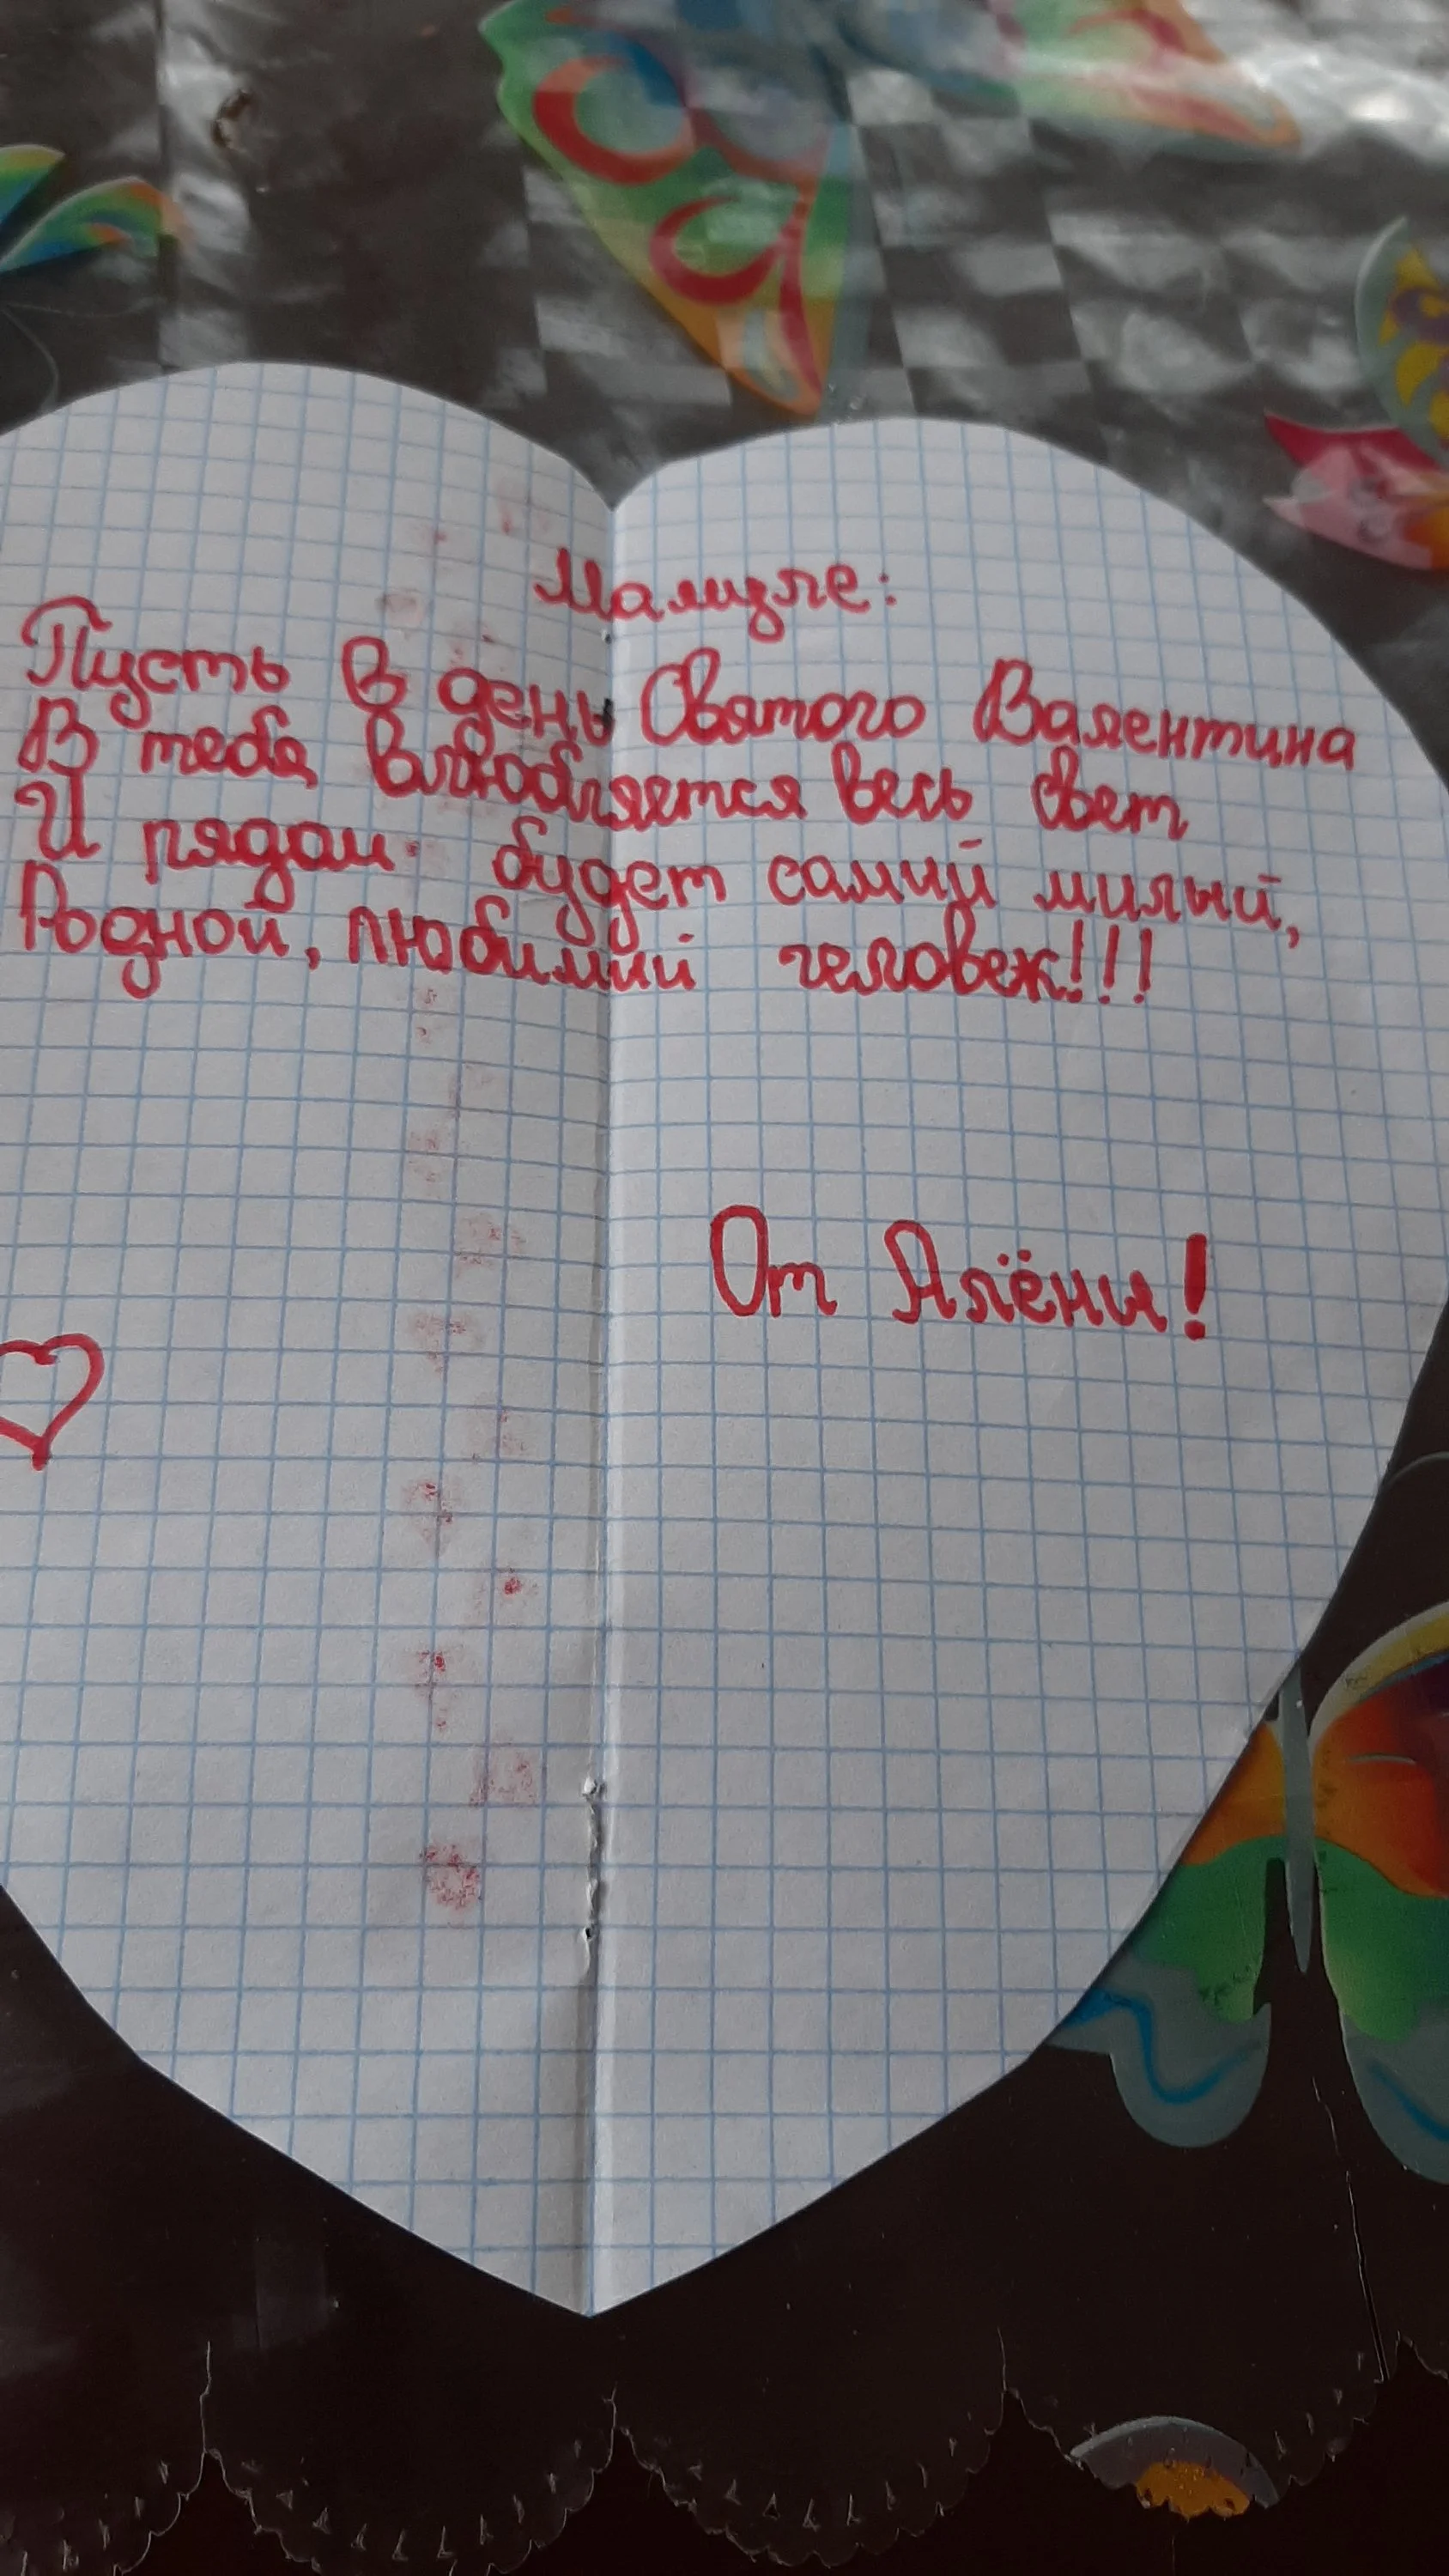 Мамуле:
Пусть в день Святого Валентина
В тебя влюбляется весь свет
И рядом будет самый милый,
Родной, любимый человек!!!
От Алёны!